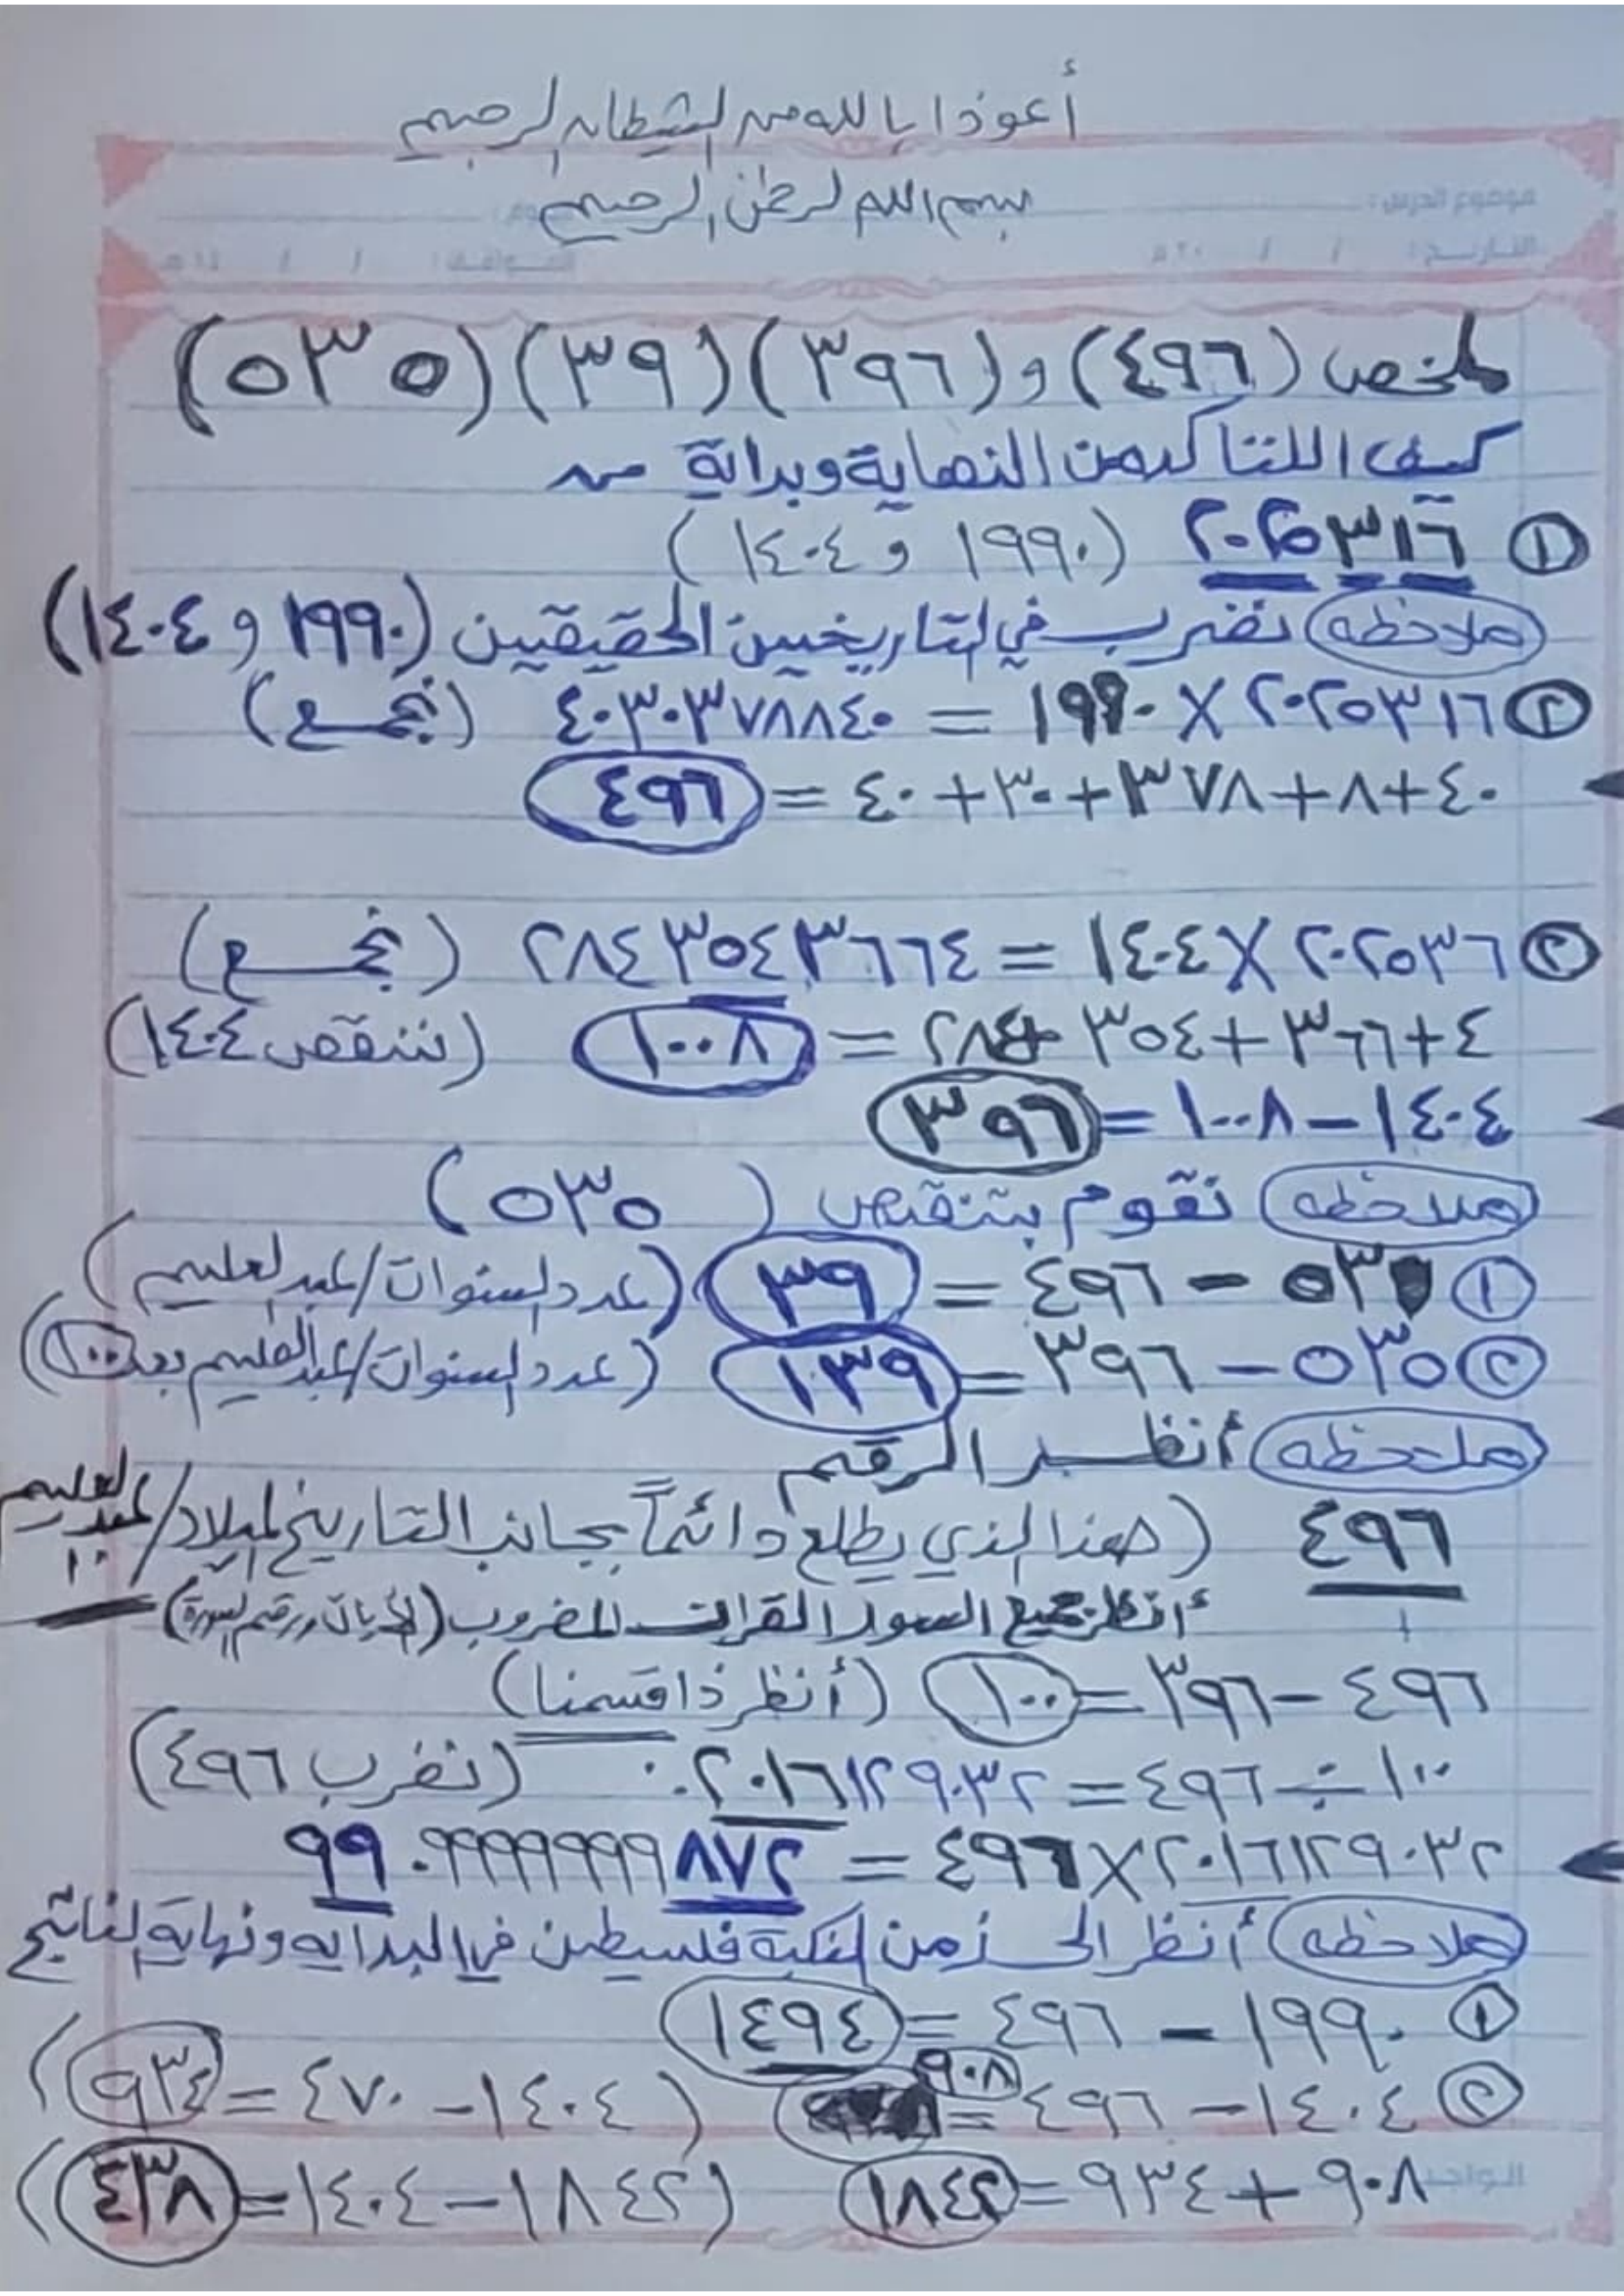 أعوذا بالله من الشيطان الرجيم
بسم الله الرحمن الرحيم
ملخص (٤٩٦) و (٣٩٦) (٣٩) (٥٣٥)
كيف اللتاكد من النهاية وبداية من
① ٢٠٢٥٣١٦ (١٩٩٠ و ١٤٠٤)
ملاحظه نضرب في التاريخين الحقيقين (١٩٩٠ و ١٤٠٤)
② ٢٠٢٥٣١٦ × ١٩٩٠ = ٤٠٣٠٣٧٨٨٤٠ (نجمع)
٤٠+٨+٣٧٨+٣٠+٤٠ = ٤٩٦
② ٢٠٢٥٣٦ × ١٤٠٤ = ٢٨٤٣٥٤٣٦٦٤ (نجمع)
٤+٣٦٦+٣٥٤+٢٨٤ = ١٠٠٨ (ننقص ١٤٠٤)
١٤٠٤ – ١٠٠٨ = ٣٩٦
ملاحظه نقوم بتنقص (٥٣٥)
① ٥٣٥ – ٤٩٦ = ٣٩ (عدد السنوات/عبدالعليم)
② ٥٣٥ – ٣٩٦ = ١٣٩ (عدد السنوات/عبدالعليم بعد ١٠٠)
ملحظه أنظـر الرقم
٤٩٦ (هذا الذي يطلع دائماً بجانب التاريخ لميلاد/عبدالعليم
أنظر جميع السور القران المضروب (الأيات ورقم السورة)
٤٩٦ – ٣٩٦ = ١٠٠ (أنظر ذا قسمنا)
١٠٠ ÷ ٤٩٦ = ٢٠١٦١٢٩٠٣٢٠. (نضرب ٤٩٦)
٢٠١٦١٢٩٠٣٢ × ٤٩٦ = ٩٩٠٩٩٩٩٩٩٩٨٧٢
ملاحظه أنظر الى زمن نكبة فلسطين في البدايه ونهاية الناتج
① ١٩٩٠ – ٤٩٦ = ١٤٩٤
② ١٤٠٤ – ٤٩٦ = ٩٠٨ (١٤٠٤ – ٤٧٠ = ٩٣٤)
٩٠٨ + ٩٣٤ = ١٨٤٢ (١٨٤٢ – ١٤٠٤ = ٤٣٨)